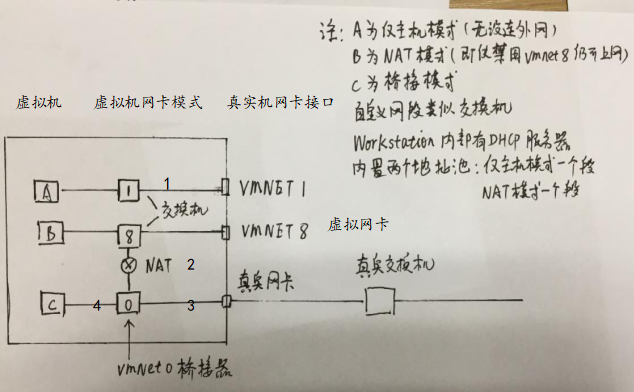 注: A为仅主机模式(无法连外网)
B为NAT模式(即仅禁用vmnet8仍可上网)
C为桥接模式
自定义网段类似交换机
Workstation内部有DHCP服务器
内置两个地址池: 仅主机模式一个段
NAT模式一个段
虚拟机 虚拟机网卡模式 真实机网卡接口
A 1 1 VMNET1
交换机
B 8 VMNET8 虚拟网卡
NAT 2
真实网卡 真实交换机
C 4 0 3
VMNet0桥接器